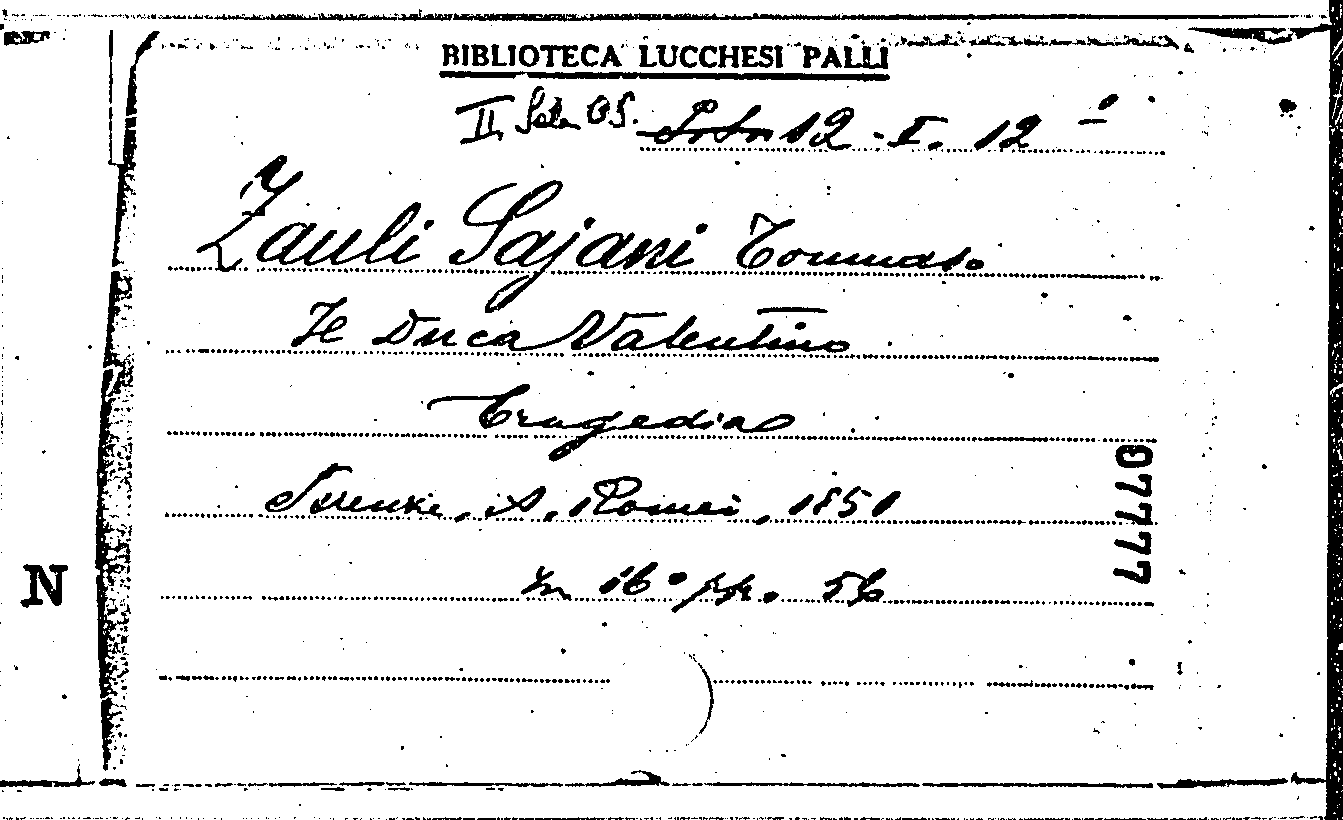 BIBLIOTECA LUCCHESI PALLI
II Sala 12 - I. 12
Zauli Sajani Tommaso
Il Duca Valentino
Tragedia
Firenze, A. Romei, 1850
in 16° pp. 56
07777
N